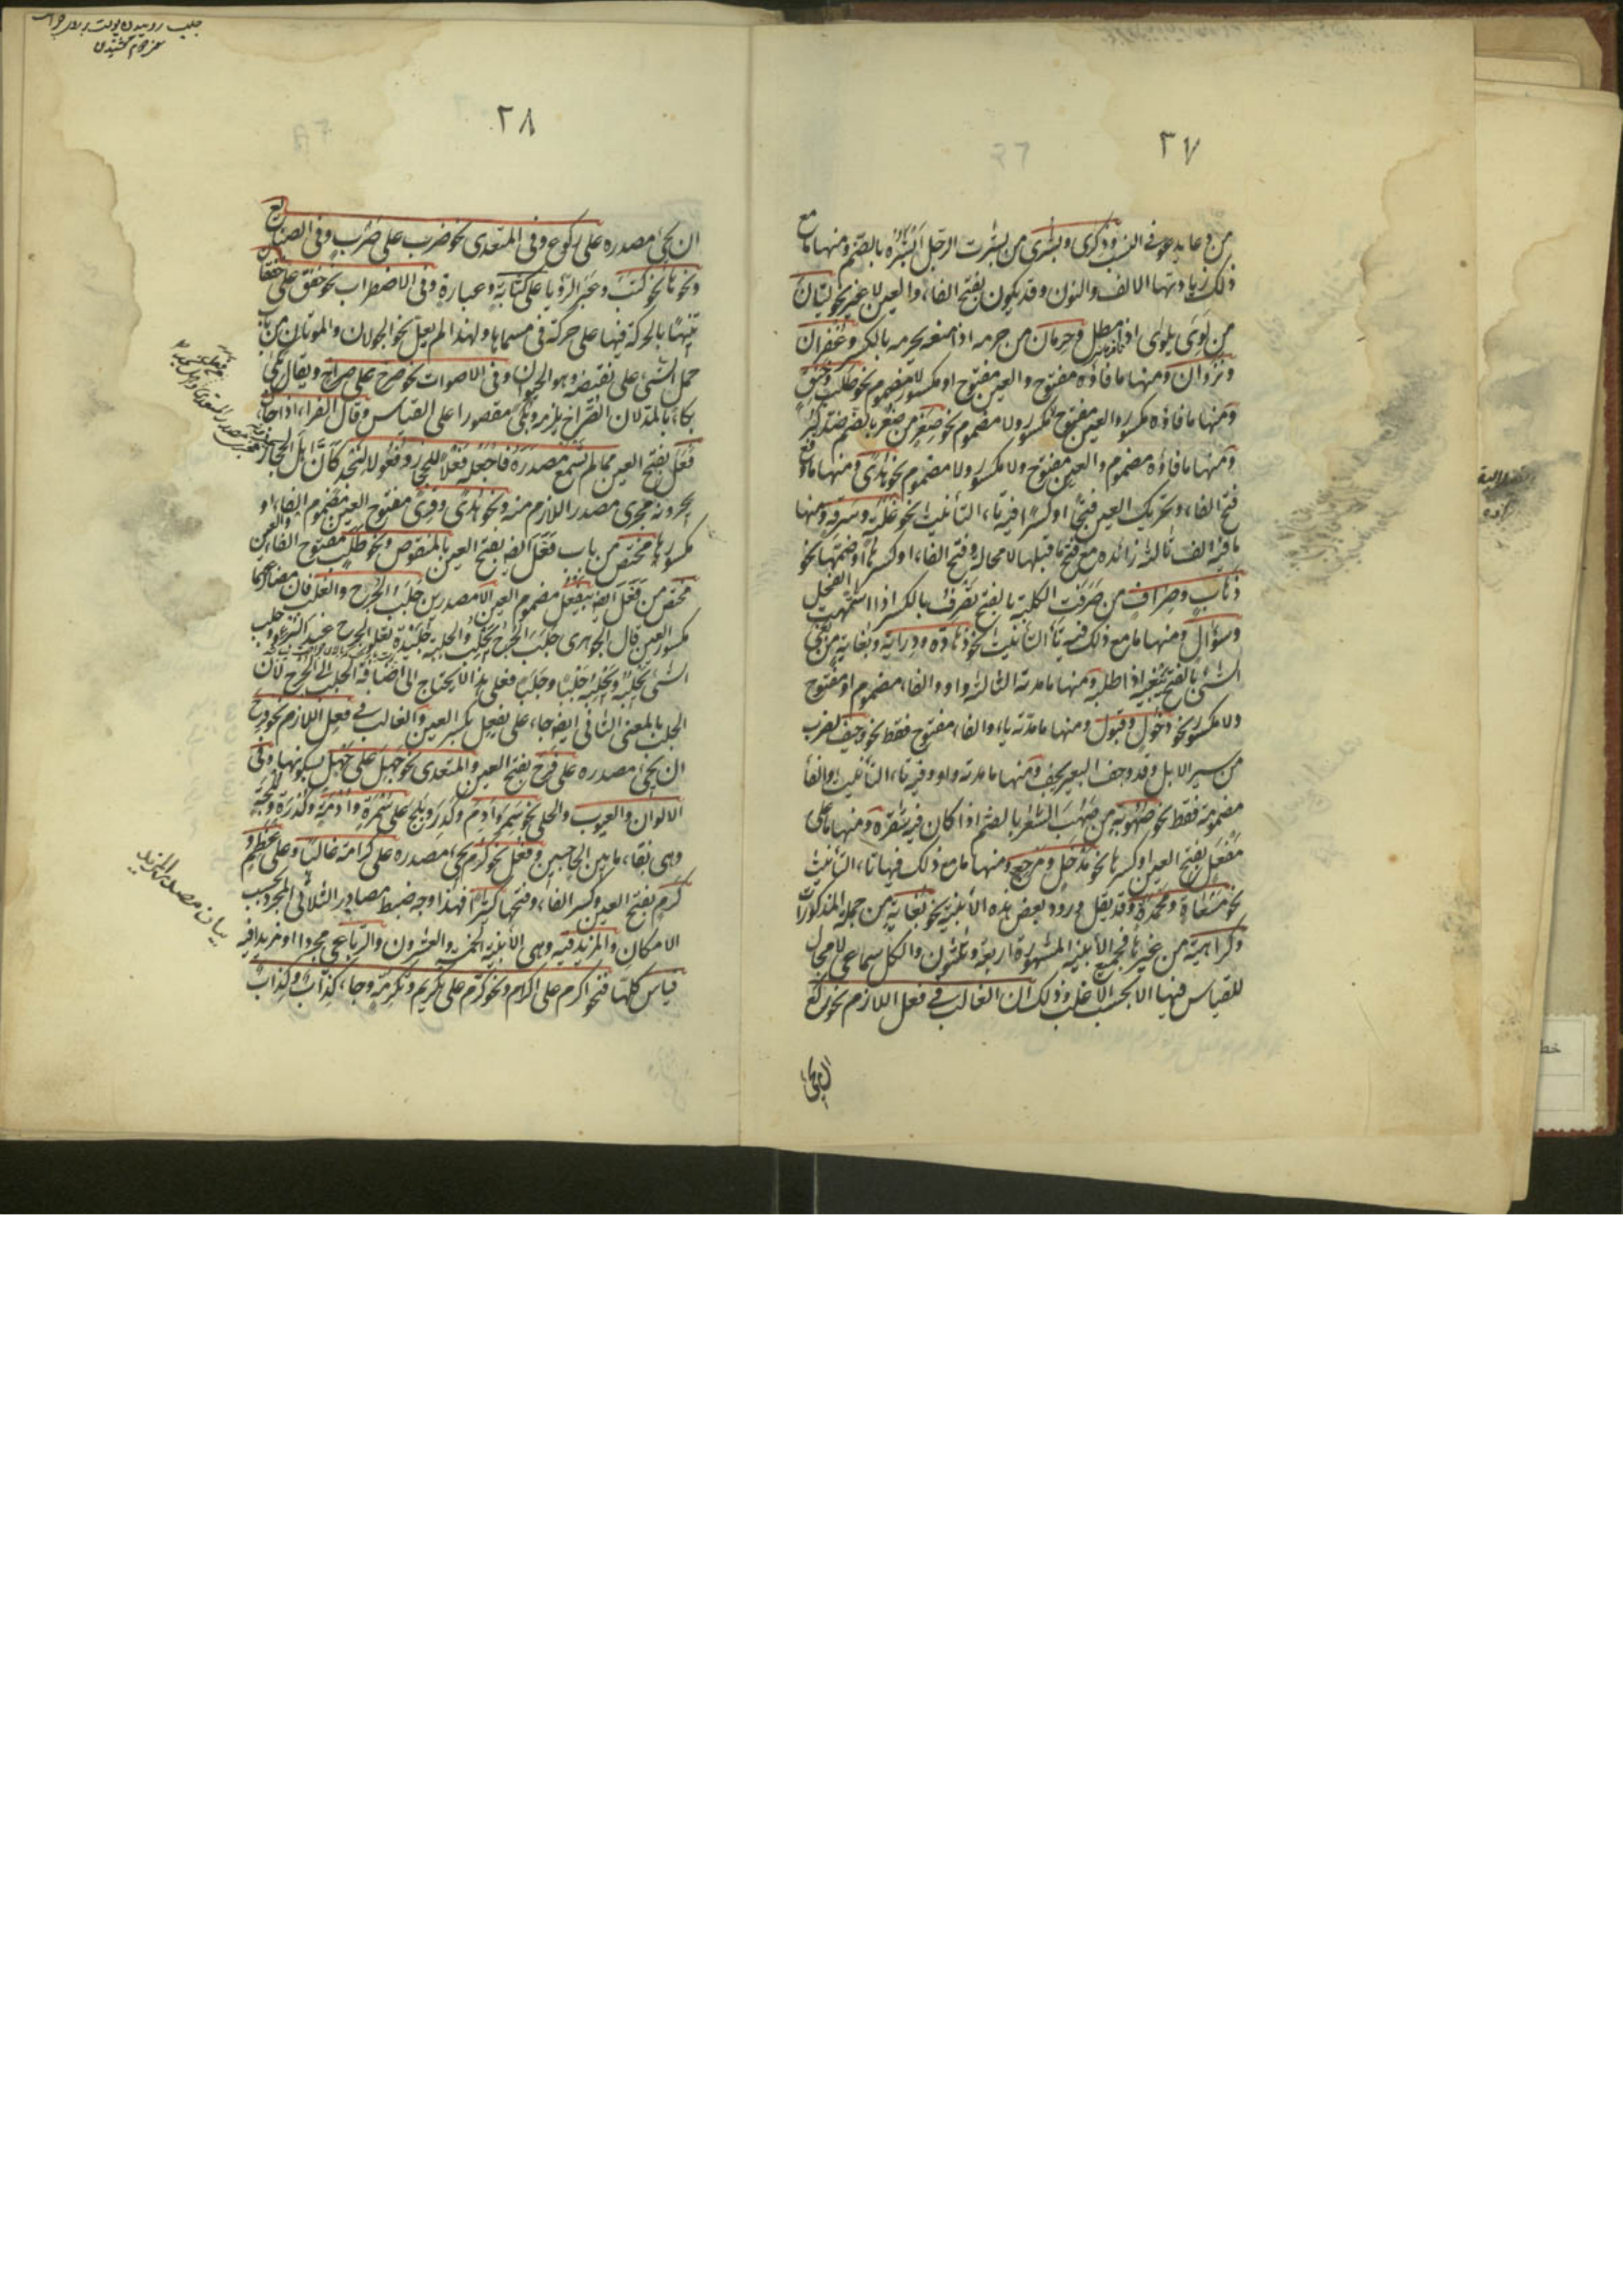 ٢٧
من دعا يدعو في النسب وذكرى وبشرى من بشرت الرجل ابشره بالضم ومنها ما مع
ذلك زيادتها الالف والنون وقد يكون بفتح الفاء والعين لا غير نحو ليان
من لوى يلوى اذا مطل وحرمان من حرمه اذا منعه يحرمه بالكسر وغفران
ونزوان ومنها ما فاؤه مفتوح والعين مفتوح او مكسور لا مضموم نحو طلب وخنق
ومنها ما فاؤه مكسور والعين مفتوح لا مكسور ولا مضموم نحو صغر من صغر بالضم ضد كبر
ومنها ما فاؤه مضموم والعين مفتوح ولا مكسور ولا مضموم نحو هدى ومنها ما مع
فتح الفاء وتحريك العين فتحا او كسرا فيه تاء التأنيث نحو غلبة وسرقة ومنها
ما فيه الف ثالثة زائدة مع فتح ما قبلها لا محالة وفتح الفاء او كسرها او ضمها نحو
ذهاب وصراف من صرفت الكلبة بالفتح تصرف بالكسر اذا اشتهت الفحل
وسؤال ومنها ما مع ذلك فيه تاء التأنيث نحو زهادة ودراية وبغاية من بغى
الشئ بالفتح يبغيه اذا طلبه ومنها ما مدته الثالثة واو والفاء مضموم او مفتوح
ولا مكسور نحو دخول وقبول ومنها ما مدته ياء والفاء مفتوح فقط نحو وجيف لضرب
من سير الابل وقد وجف البعير يجف ومنها ما مدته واو وفيه تاء التأنيث والفاء
مضمومة فقط نحو صهوبة من صهب الشعر بالضم اذا كان فيه شقرة ومنها ما على
مفعل بفتح العين او كسرها نحو مدخل ومرجع ومنها ما مع ذلك فيها تاء التأنيث
نحو مسعاة ومحمدة وقد يقل ورود بعض هذه الأبنية نحو بغاية من جملة المذكورات
وكراهية من غيرها فجميع الأبنية المشهورة اربعة وثلثون والكل سماعي لا مجال
للقياس فيها الا بحسب الاغلب وذلك ان الغالب في فعل اللازم نحو ركع
٢٨
ان يجئ مصدره على ركوع وفي المتعدى نحو ضرب على ضرب وفي الصنايع
ونحوها نحو كتب وعبر الرؤيا على كتابة وعبارة وفي الاضطراب نحو خفق على خفقان
تنبيها بالحركة فيها على حركة في مسماها ولهذا لم يعل نحو الجولان والموتان من باب
حمل الشئ على نقيضه وهو الحيوان وفي الاصوات نحو صرخ على صراخ ويقال بكى
بكاء بالمد لان الصراخ يلزمه وبكى مقصورا على القياس وقال الفراء اذا جاءك
فعل بفتح العين مما لم تسمع مصدره فاجعله فعلا للحجاز وفعولا لنجد كأن اهل الحجاز
يجرونه مجرى مصدر اللازم منه ونحو هدى وقرى مفتوح العين مضموم الفاء او
مكسورها مختص من باب فعل ايضا بفتح العين بالمنقوص ونحو طلب مفتوح الفاء والعين
مختص من فعل ايضا بيفعل مضموم العين الا مصدرين جلب الجرح والغلب فان مضارعهما
مكسور العين قال الجوهرى جلب الجرح يجلب ويجلب والجلبة جليدة تعلو الجرح عند البرء وجلب
الشئ يجلبه ويجلبه جلبا وجلبا فعلى هذا لا يحتاج الى اضافة الجلب الى الجرح لان
الجلب بالمعنى الثاني ايضا جاء على يفعل بكسر العين والغالب في فعل اللازم نحو فرح
ان يجئ مصدره على فرح بفتح العين والمتعدى نحو جهل على جهل بسكونها وفي
الالوان والعيوب والحلى نحو سمر وادم وكدر وبلج على سمرة وادمة وكدرة وبلجة
وهي نقاء ما بين الحاجبين وفعل نحو كرم يجئ مصدره على كرامة غالبا وعلى عظم و
كرم بفتح العين وكسر الفاء وفتحها كثيرا فهذا وجه ضبط مصادر الثلاثي المجرد بحسب
الامكان والمزيد فيه وهي الأبنية الخمسة والعشرون والرباعي مجردا او مزيدا فيه
قياس كلها فنحو اكرم على اكرام ونحو كرم على تكريم وتكرمة وجاء كذاب وكذاب
بيان مصدر المزيد